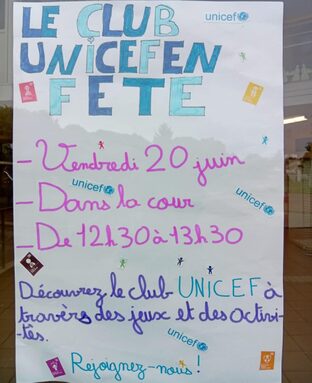 LE CLUB
unicef
UNICEF EN
FETE
- Vendredi 20 juin
unicef
- Dans la cour
unicef
- De 12h30 à 13h30
Découvrez le club UNICEF à
travèrs des jeux et des activi-
tés.
unicef
Rejoignez-nous !